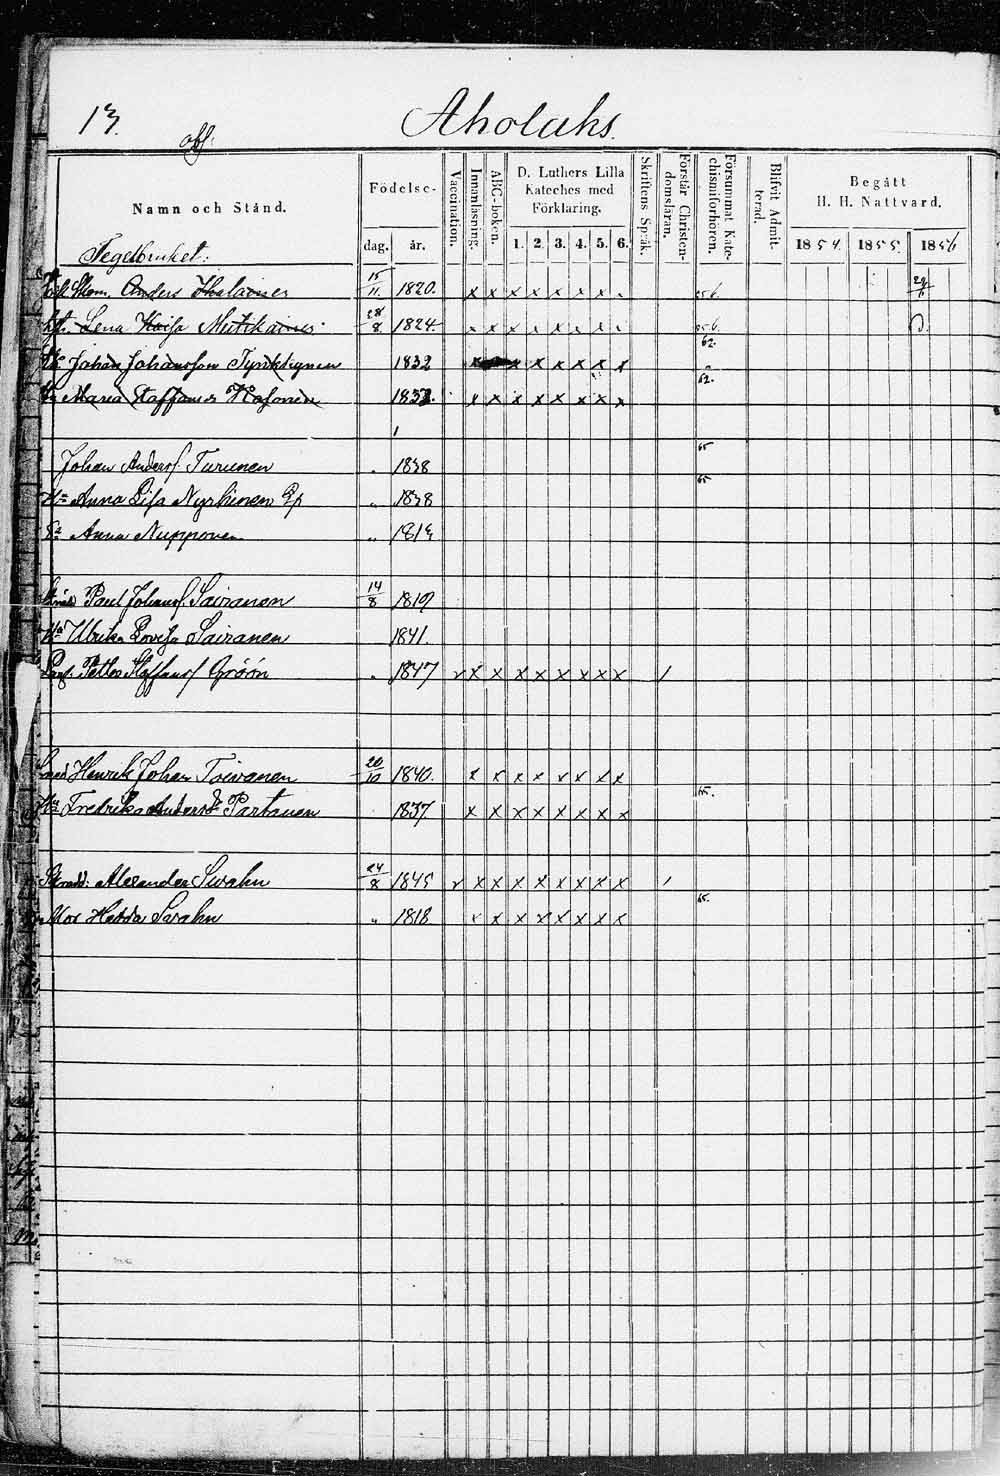 13.
Aholaks.
Namn och Stånd.
Födelse-
dag. år.
Vaccination.
Innanläsning.
ABC-boken.
D. Luthers Lilla
Kateches med
Förklaring.
1. 2. 3. 4. 5. 6.
Skriftens Språk.
Förstår Christen-
domsläran.
Försummat Kate-
chismiförhören.
Blifvit Admit-
terad.
Begått
H. H. Nattvard.
1854. 1855. 1856
Tegelbruket:
Anders 15/11 1820. x x x x x x x
Lena Kaisa Mutikainen 28/8 1824 x x x x x x x 62.
Johan Johansson 1832 x x x x x x
Maria Staffansd. 1833. x x x x x x x x 62.
Johan Anders. Turunen " 1838 65
Hu Anna Lisa Nyrhinen " 1838 65
Anna Nupponen " 1814
Paul Johans. Sairanen 14/8 1819
Hu Ulrika Lovisa Sairanen 1841.
Petter Staffans. Gröön " 1847 v x x x x x x x x /
Henrik Johan Toivanen 20/10 1840. x x x x x x x x
Hu Fredrika Andersd. Partanen 1837 x x x x x x x x 65.
Alexander Swahn 24/8 1845 v x x x x x x x x /
Mor Hedda Swahn " 1818 x x x x x x x x 65.